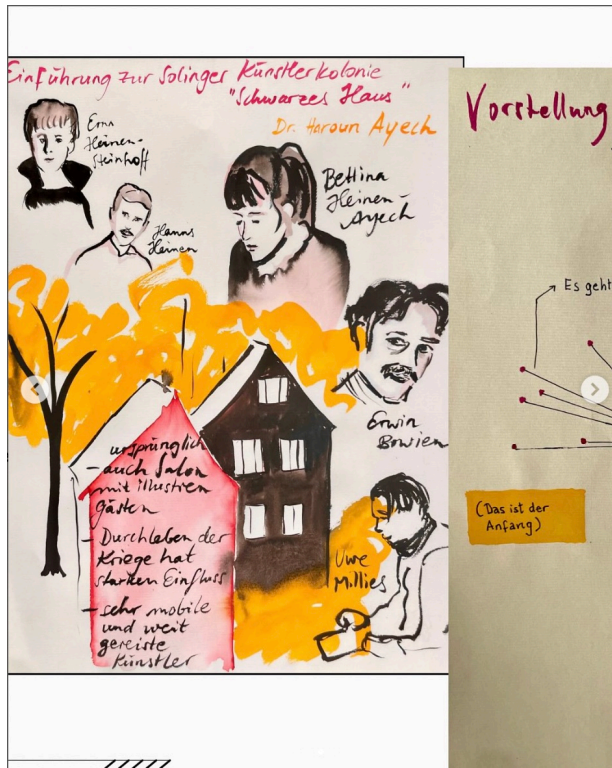 Einführung zur Solinger Künstlerkolonie
"Schwarzes Haus"
Dr. Haroun Ayech
Erna
Heinen-
Steinhoff
Hanns
Heinen
Bettina
Heinen-
Ayech
Erwin
Bowien
Uwe
Millies
ursprünglich
- auch Salon
mit illustren
Gästen
- Durchleben der
Kriege hat
starken Einfluss
- sehr mobile
und weit
gereiste
Künstler
Vorstellung
Es geht
(Das ist der
Anfang)